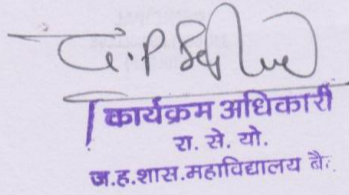 कार्यक्रम अधिकारी
रा. से. यो.
ज.ह.शास.महाविद्यालय बै.